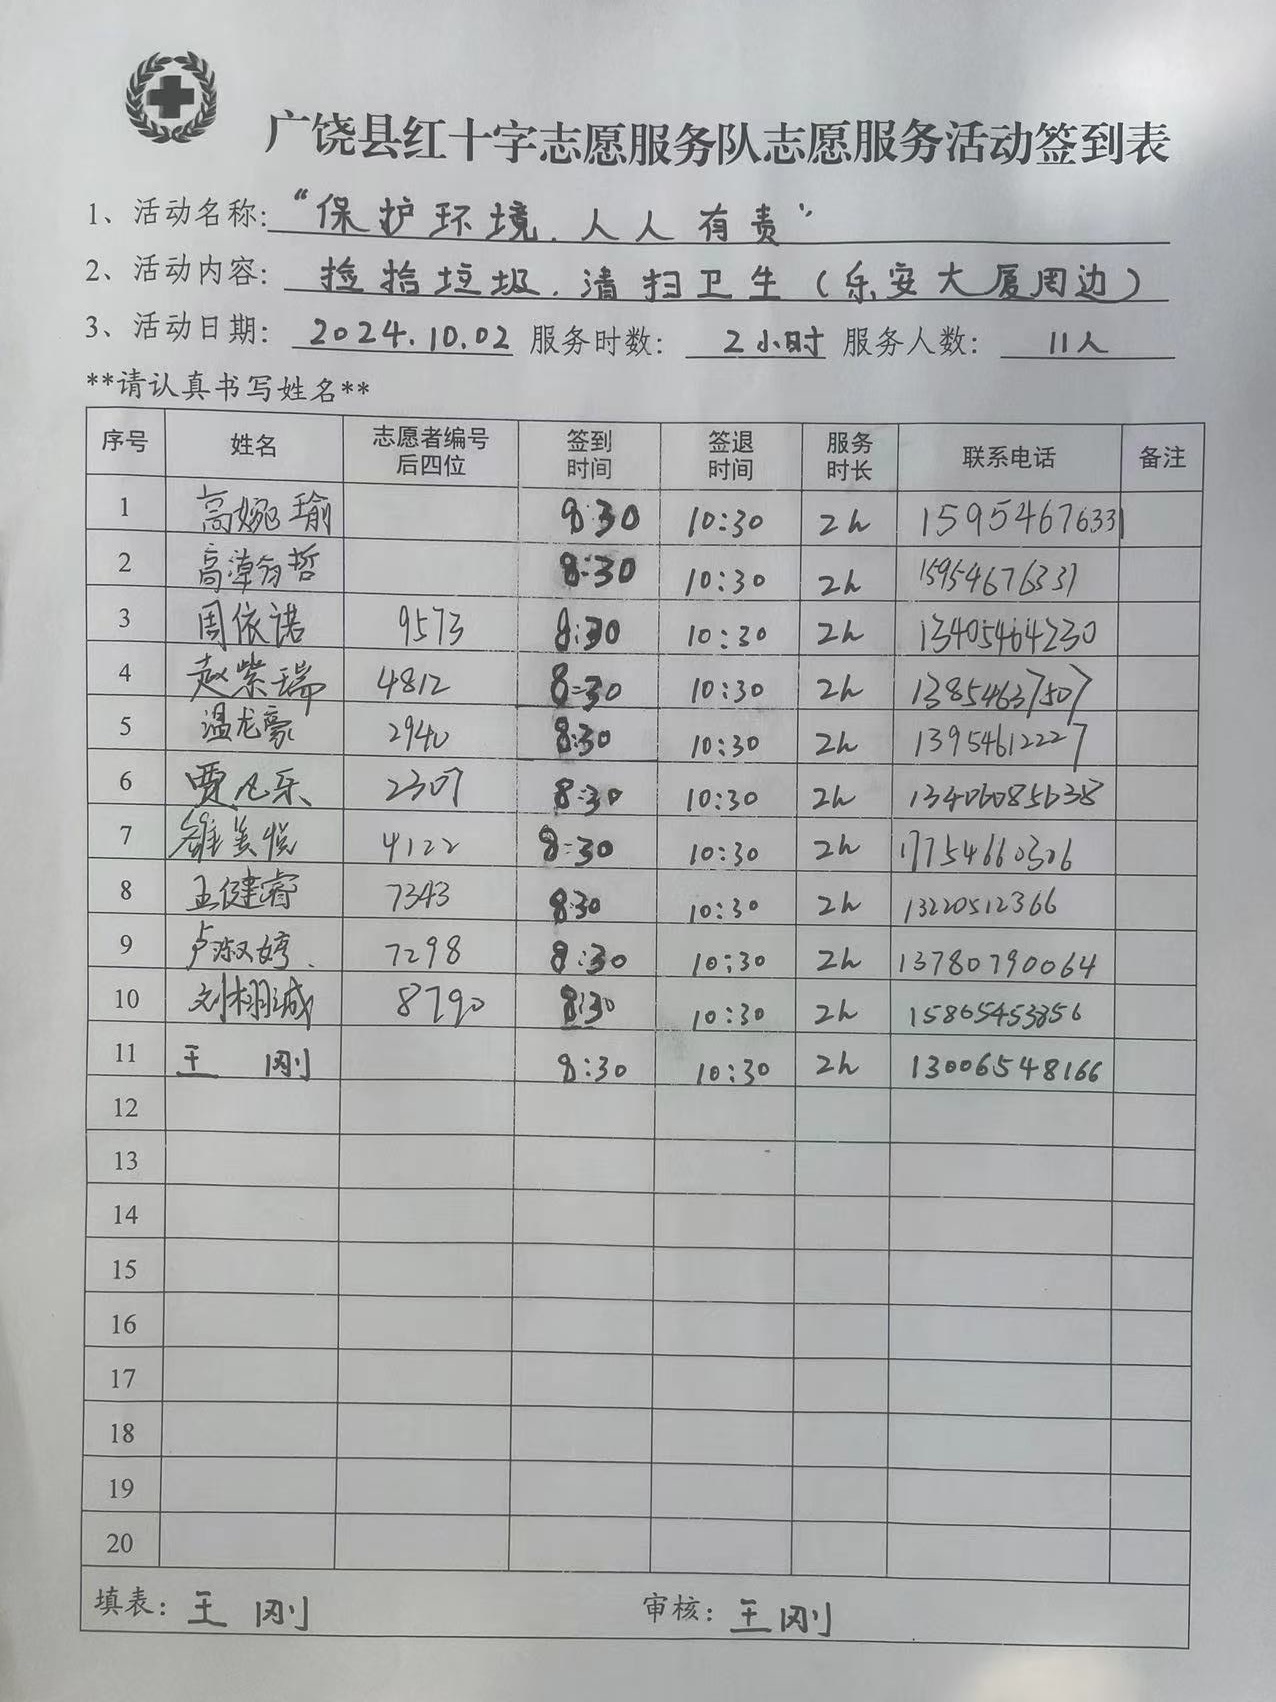 广饶县红十字志愿服务队志愿服务活动签到表
1、活动名称:“保护环境.人人有责”
2、活动内容: 捡拾垃圾.清扫卫生(乐安大厦周边)
3、活动日期: 2024.10.02 服务时数: 2小时 服务人数: 11人
**请认真书写姓名**
序号 姓名 志愿者编号后四位 签到时间 签退时间 服务时长 联系电话 备注
1 高婉瑜 8:30 10:30 2h 15954676331
2 高 哲 8:30 10:30 2h 15954676331
3 周依诺 9573 8:30 10:30 2h 13405464230
4 赵紫瑞 4812 8:30 10:30 2h 13854637507
5 温龙豪 2940 8:30 10:30 2h 13954612227
6 贾凡乐 2307 8:30 10:30 2h 13406085638
7 美悦 4122 8:30 10:30 2h 17754660306
8 王健睿 7343 8:30 10:30 2h 13220512366
9 卢淑婷. 7298 8:30 10:30 2h 13780790064
10 刘栩诚 8790 8:30 10:30 2h 15865453856
11 王刚 8:30 10:30 2h 13006548166
12
13
14
15
16
17
18
19
20
填表: 王刚 审核: 王刚